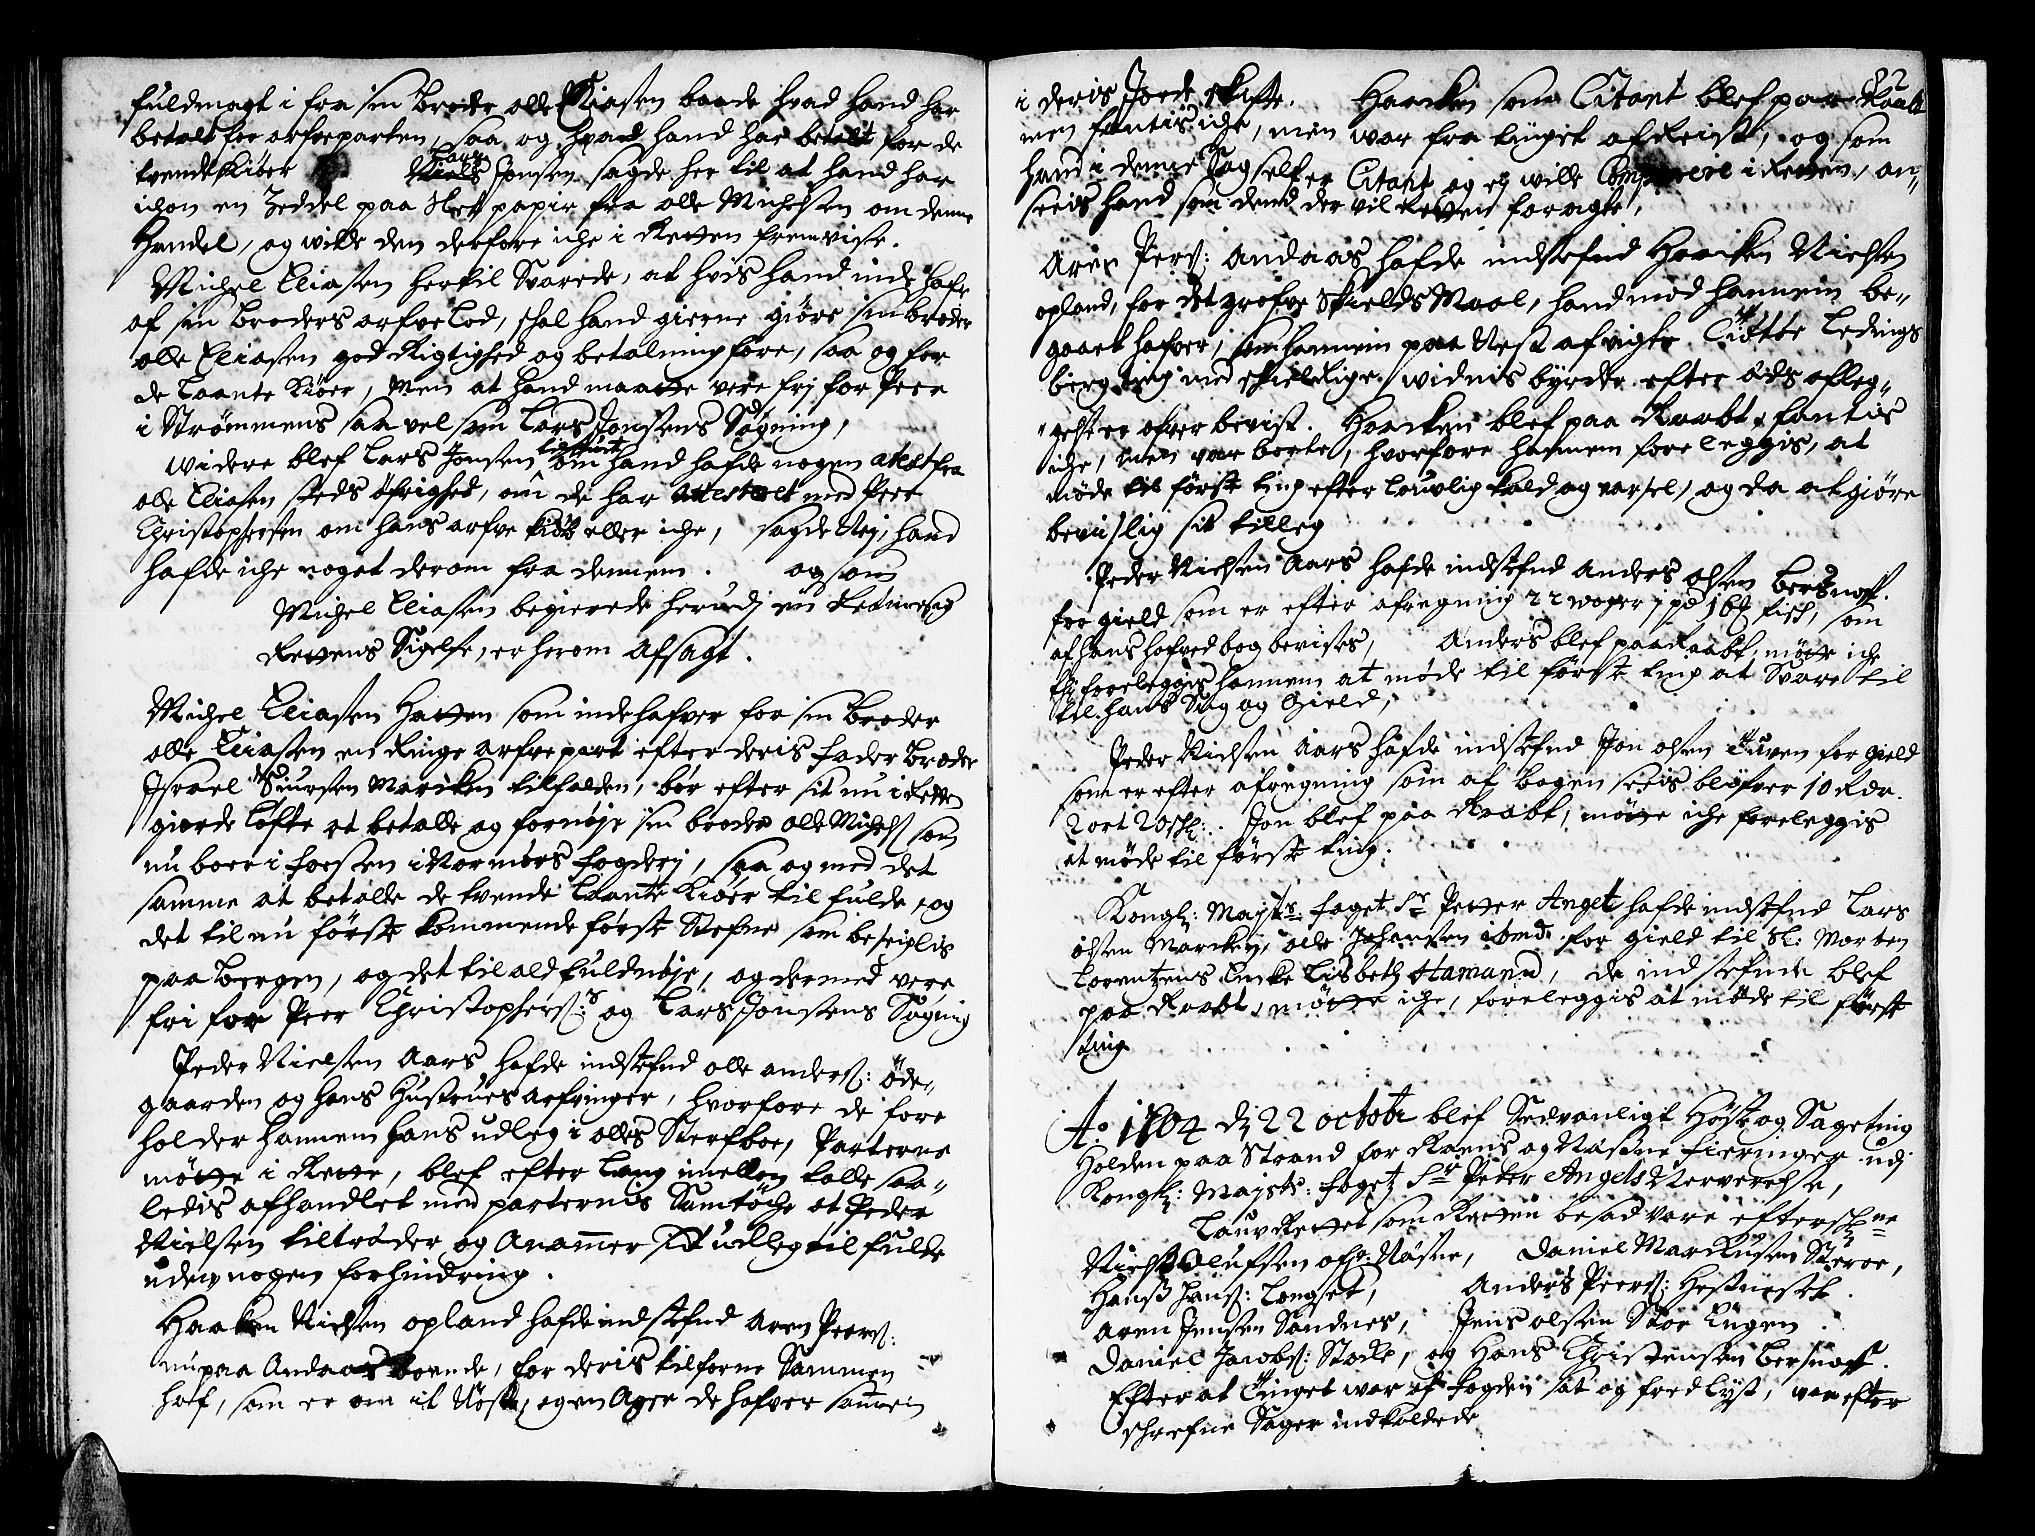 fuldmagt i fra sin broder olle Eliasen baade hvad hand har
betalt for arfveparten, saa og hvad hand har betalt for de
tvende kiør Lars Jonsen sagde her til at hand har
ichon en Zeddel paa slet papir fra olle Michelsen om denne
Handel, og wilde den derfore iche i Retten fremvise.
Michel Eliasen hertil Svarede, at hvis hand inde hafr
af sin broders arfve Lod, schal hand gierne giøre sin broder
olle Eliasen god Rigtighed og betalning fore, saa og for
de Laante kiøer, Men at hand maatte vere frj for Peer
i Strømmens saa vel som Lars Jonsens Søgning,
widere blef Lars Jonsen tilspurt om hand hafde nogen atest fra
olle Eliasen steds øfrighed, om de har attesteret med Peer
Christophersen om hans arfve kiøb eller iche, sagde Nej, hand
hafde iche noget derom fra dennem. og som
Michel Eliasen begierede herudj en
Rettens Sigelse, er herom Afsagt.
Michel Eliasen Hatten som indehafver for sin broder
olle Eliasen en Ringe arfvepart efter deris fader broder
Israel Siursen Marcken tilfalden, bør efter sit nu i Retten
giorde Løfte at betalle og fornøje sin broder olle Michels: som
nu boer i foesen i Normørs fogderj, saa og med det
samme at betalle de tvende Laante kiøer til fulde, og
det til nu først kommende først Stefne som beseiglis
paa bergen, og det til ald fuldnøje, og dermed vere
fri for Peer Christophers: og Lars Jonsens Søgning
Peder Nielsen Aars hafde indstefnd olle anders: øde-
gaarden og hans Hustrues Arfvinger, hvorfore de fore
holder hannem hans udleg i olles Sterfboe, Parterne
møtte i Rette, blef efter Lang imellem talle saa-
ledis afhandlet med parternis Samtøche at Peder
Nielsen tiltræder og Anammer sit udleg til fulde
uden nogen forhindring.
Haaken Nielsen opland hafde indstefnd Aren Peers:
nu paa Andaas boende, for deris tilforne Sammen
hof, som er om it Nøst, og en Ager de hafver samen
82
i deris Jorde skifte. Haacken som Citant blef paa Raabt
men fantis iche, men war fra tinget afreist, og som
hand i denne Sag self er Citant og ej wille Comparere i Retten, an-
seeis hand som dend der vil Retten foragte,
Aren Pers: Andaas hafde indstefnd Haacken Nielsen
opland, for det grofve Skields Maal, hand mod hannem be-
gaaet hafver, som hannem paa Nest afvigte Ledings
berg ting med skiellige widnis byrder efter æds afleg-
gelse er ofver bevist. Haacken blef paa Raabt, fantis
iche, men var borte, hvorfore hannem foreleggis, at
møde til først ting efter Louvlig kald og varsel, og da at giøre
bevislig sit tilleg
Peder Nielsen Aars hafde indstefnd Anders olsen Bersnes.
for gield som er efter afregning 22 woger 1 pd 1 bl fisch, som
af hans hofved bog bevises, Anders blef paa Raabt, møtte iche
thj foreleggis hannem at møde til først ting at Svare til
til hans Sag og gield,
Peder Nielsen Aars hafde indstefnd Jon olsen Tuven for gield
som er efter afregning som af bogen seeis blifver 10 Rdr.
2 ort 20 sk: Jon blef paa Raabt, møtte iche foreleggis
at møde til først ting.
Kongl: Mayts foget Sr Petter Angel hafde indstefnd Lars
olsen Marcken, olle Johansen ibmd. for gield til Sl: Morten
Lorentzens Encke Lisbeth Hamand, de indstefnde blef
paa Raabt, møtte iche, foreleggis at møde til først
ting
Ao 1704 dj 22 octobr blef Sedvanligt Høst og Sageting
Holden paa Strand for Ramns og Nasne fieringer udj
Kongl: Maysts: foget Sr Peter Angels Nerverelse,
Lauv Rettet som Retten besad vare efterschne
Niels Olufsen ofr: Nøsne, Daniel Marckusen Steroe,
Hanss Hans: Longset, Anders Peers: Hestneset.
Aren Jensen Sandnes, Jens olsen Stor Lugen.
Daniel Jacobs: Stocke, og Hans Christensen bersnes.
Efter at Tinget war af fogden sat og fredlyst, war efter
schrefne Sager indkaldede